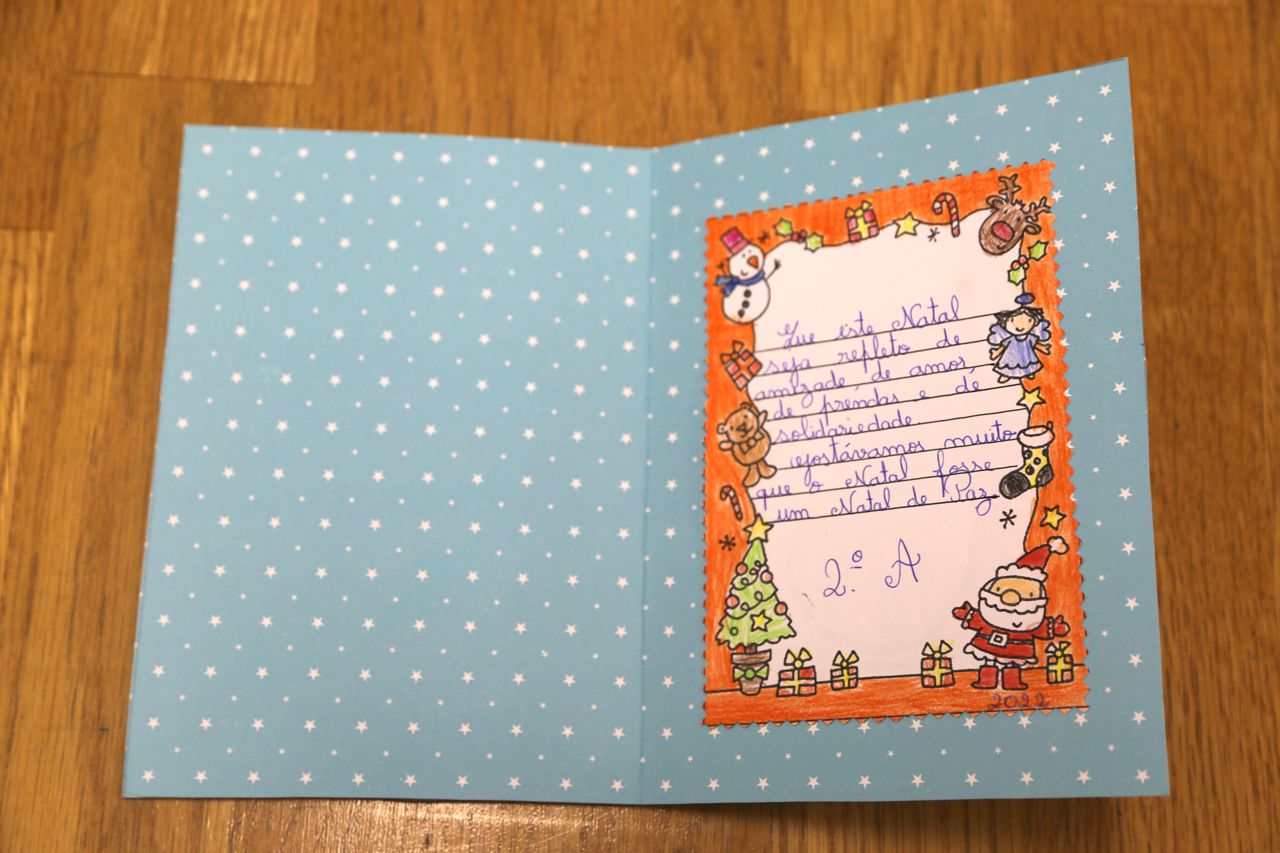 Que este Natal
seja repleto de
amizade, de amor,
de prendas e de
solidariedade.
Gostávamos muito
que o Natal fosse
um Natal de Paz
2.º A
2022